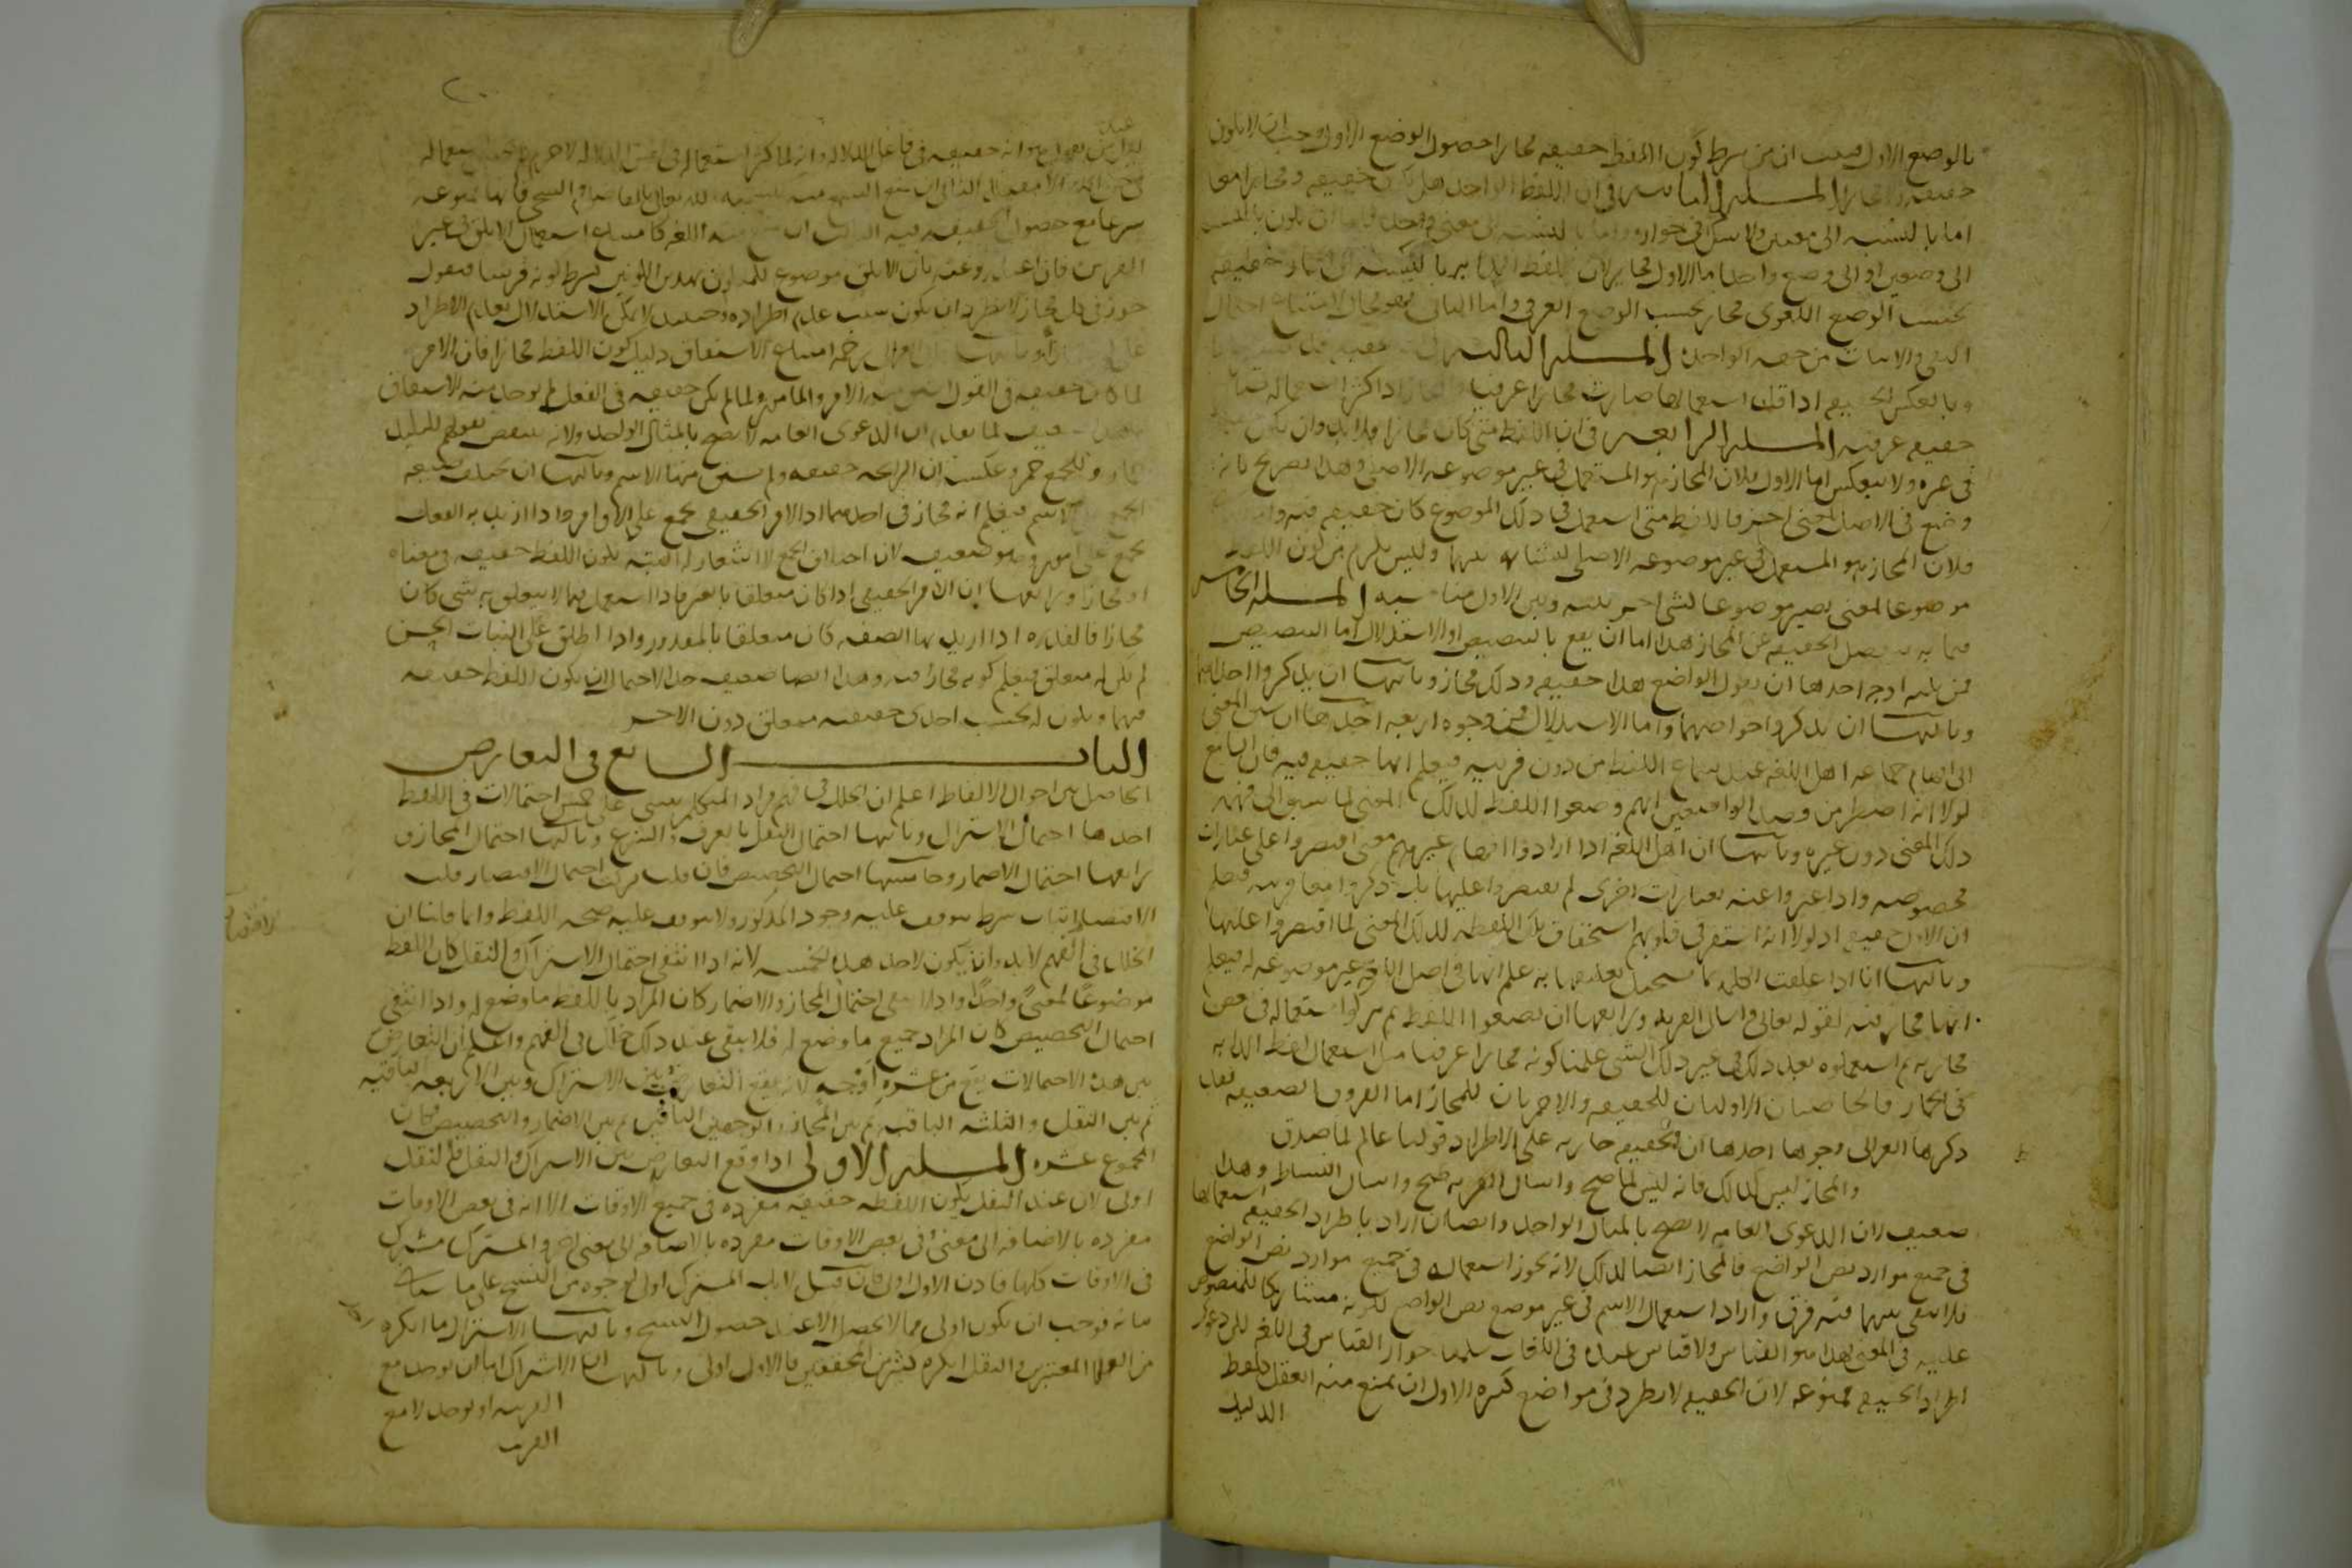 بالوضع الاول فثبت ان من شرط كون اللفظ حقيقه مجازا حصول الوضع الاول وجب ان لا يكون
حقيقه ولا مجازا المسله الثانيه في ان اللفظ الواحد هل يكون حقيقه ومجازا معا
اما بالنسبه الى معنيين ولا شك في جوازه واما بالنسبه الى معنى واحد فاما ان يكون بالنسبه
الى وضعين او الى وضع واحد اما الاول فجايز لان لفظ الدابه بالنسبه الى الحمار حقيقه
بحسب الوضع اللغوي مجاز بحسب الوضع العرفي واما الثاني فهو محال لامتناع اجتماع
النفي والاثبات من جهه الواحده المسله الثالثه
وبالعكس الحقيقه اذا قل استعمالها صارت مجازا عرفيا والمجاز اذا كثر استعماله صار
حقيقه عرفيه المسله الرابعه في ان اللفظ متى كان مجازا فلا بد وان يكون حقيقه
في غيره ولا ينعكس اما الاول فلان المجاز هو المستعمل في غير موضوعه الاصلي وهذا تصريح بانه
وضع في الاصل لمعنى اخر فاللفظ متى استعمل في ذلك الموضوع كان حقيقه فيه واما
فلان المجاز هو المستعمل في غير موضوعه الاصلي لمشابهه بينهما وليس يلزم من كون اللفظ
موضوعا لمعنى يصير موضوعا لشي اخر بينه وبين الاول مناسبه المسله الخامسه
فيما به ينفصل الحقيقه عن المجاز هذا اما ان يقع بالتنصيص او الاستدلال اما التنصيص
فمن ثلثه اوجه احدها ان يقول الواضع هذا حقيقه وذلك مجاز وثانيها ان يذكروا احدهما
وثالثها ان يذكروا خواصهما واما الاستدلال فمن وجوه اربعه احدها ان سبق المعنى
الى افهام جماعه اهل اللغه عند سماع اللفظ من دون قرينه فيعلم انها حقيقه فيه فان السامع
لولا انه اضطر من قصد الواضعين انهم وضعوا اللفظ لذلك المعنى لما سبق الى فهمه
ذلك المعنى دون غيره وثانيها ان اهل اللغه اذا ارادوا افهام غيرهم معنى اقتصروا على عبارات
مخصوصه واذا عبروا عنه بعبارات اخرى لم يقتصروا عليها بل ذكروا معها قرينه فيعلم
ان الاول حقيقه اذ لولا انه استقر في قلوبهم استحقاق تلك اللفظه لذلك المعنى لما اقتصروا عليها
وثالثها انا اذا علقت الكلمه بما يستحيل تعليقها به علم انها في اصل اللغه غير موضوعه له فيعلم
انها مجاز فيه كقوله تعالى واسال القريه ورابعها ان يضعوا اللفظ ثم يتركوا استعماله في بعض
مجازيه ثم استعملوه بعد ذلك في غير ذلك الشي علمنا كونه مجازا عرفيا مثل استعمال لفظ الدابه
في الحمار فالخاصيتان الاوليان للحقيقه والاخريان للمجاز اما الفروق الضعيفه فقد
ذكرها الغزالي وجوها احدها ان الحقيقه جاريه على الاطراد قولنا عالم لما صدق
والمجاز ليس كذلك فانه ليس لما صح واسال القريه صح واسال البساط وهذا
ضعيف لان الدعوى العامه لا تصح بالمثال الواحد وايضا ان اراد باطراد الحقيقه استعمالها
في جميع موارد نص الواضع فالمجاز ايضا كذلك لانه يجوز استعماله في جميع موارد نص الواضع
فلا يبقى بينهما فيه فرق وان اراد استعمال الاسم في غير موضع نص الواضع لكونه مشاركا للمنصوص
عليه في المعنى فهذا هو القياس ولا قياس عنده في اللغات سلمنا جواز القياس في اللغه لكن دعوى
اطراد الحقيقه ممنوعه لان الحقيقه لا تطرد في مواضع كثيره الاول ان يمنع منه العقل كلفظ
الدليل
٢٠
عند
لمن يقول هو انه حقيقه في فاعل الدلاله وانه لما كثر استعماله في نفس الدلاله لا جرم لم يحسن استعماله
في حق الله الا مقيدا الثاني ان يمنع السمع منه كتسميه الله تعالى بالفاضل والسخي فانها ممنوعه
شرعا مع حصول الحقيقه فيه الثالث ان يمنع منه اللغه كامتناع استعمال الابلق في غير
الفرس فان اعتذروا عنه بان الابلق موضوع للمتلون بهذين اللونين بشرط كونه فرسا فنقول
جوز في كل مجاز لا يطرد ان يكون سبب عدم اطراده وحينئذ لا يمكن الاستدلال بعدم الاطراد
على المجاز وثانيها قال رحمه امتناع الاشتقاق دليل كون اللفظ مجازا فان الامر
لما كان حقيقه في القول اشتق منه الامر والمامور ولما لم يكن حقيقه في الفعل لم يوجد منه الاشتقاق
ضعيف لما تقدم ان الدعوى العامه لا تصح بالمثال الواحد ولانه ينتقض بقولهم للبليد
حمار وللجمع حمر وعكسه ان الرايحه حقيقه ولم يشتق منها الاسم وثالثها ان تختلف صيغه
الجمع الاسم فيعلم انه مجاز في احدهما اذ الامر الحقيقي يجمع على الاوامر واذا اريد به الفعل
يجمع على امور وهو ضعيف لان اختلاف الجمع لا اشعار له البته بكون اللفظ حقيقه في معناه
او مجازا ورابعها ان الامر الحقيقي اذا كان متعلقا بالغير فاذا استعمل فيما لا يتعلق به شي كان
مجازا فالقدره اذا اريد بها الصفه كان متعلقا بالمقدور واذا اطلق على النبات الحسن
لم يكن له متعلق فيعلم كونه مجازا فيه وهذا ايضا ضعيف جدا لاحتمال ان يكون اللفظ حقيقه
فيهما ويكون له بحسب احدى حقيقتيه متعلق دون الاخر
الباب السابع في التعارض
الحاصل بين احوال الالفاظ اعلم ان الخلل في فهم مراد المتكلم يبنى على خمس احتمالات في اللفظ
احدها احتمال الاشتراك وثانيها احتمال النقل بالعرف والشرع وثالثها احتمال المجاز و
رابعها احتمال الاضمار وخامسها احتمال التخصيص فان قلت تركت احتمال الاقتضاء قلت
الاقتضاء اثبات شرط يتوقف عليه وجود المذكور ولا يتوقف عليه صحه اللفظ وانما قلنا ان
الخلل في الفهم لا بد وان يكون لاحد هذه الخمسه لانه اذا انتفى احتمال الاشتراك والنقل كان اللفظ
موضوعا لمعنى واحد واذا انتفى احتمال المجاز والاضمار كان المراد باللفظ ما وضع له واذا انتفى
احتمال التخصيص كان المراد جميع ما وضع له فلا يبقى عند ذلك خلل في الفهم واعلم ان التعارض
بين هذه الاحتمالات يقع من عشره اوجه لانه يقع التعارض بين الاشتراك وبين الاربعه الباقيه
ثم بين النقل والثلثه الباقيه ثم بين المجاز والوجهين الباقيين ثم بين الاضمار والتخصيص فكان
المجموع عشره المسله الاولى اذا وقع التعارض بين الاشتراك والنقل فالنقل
اولى لان عند النقل يكون اللفظه حقيقه مفرده في جميع الاوقات الا انه في بعض الاوقات
مفرده بالاضافه الى معنى وفي بعض الاوقات مفرده بالاضافه الى معنى اخر والمشترك مشترك
في الاوقات كلها فكان الاول اولى فان قيل لا بل المشترك اولى لوجوه من النسخ على ما سياتي
بيانه فوجب ان يكون اولى مما لا يحصل الا عند حصول النسخ وثانيها الاشتراك ما انكره
من العلما المعتبرين والنقل انكره كثير من المحققين فالاول اولى وثالثها ان الاشتراك اما ان يوجد مع
القرينه او يوجد لا مع
القرينه